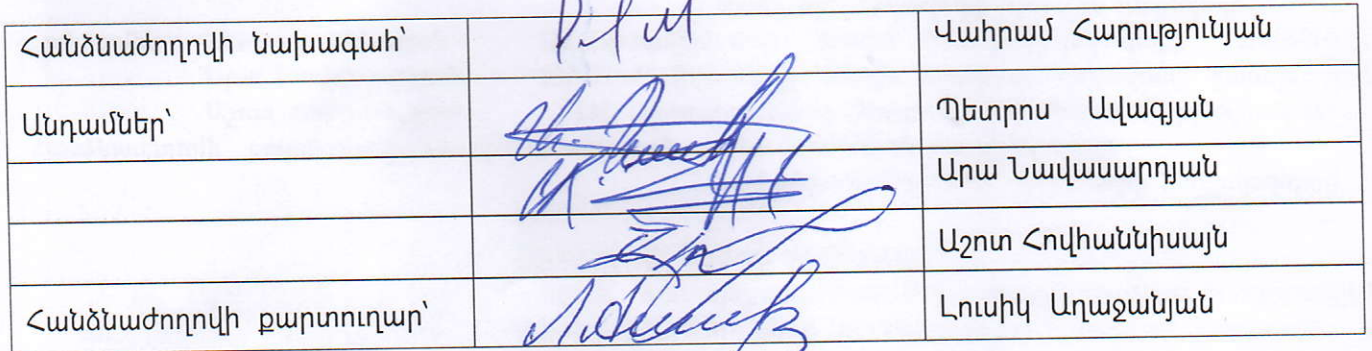 Հանձնաժողովի նախագահ՝ Վահրամ Հարությունյան
Անդամներ՝ Պետրոս Ավագյան
Արա Նավասարդյան
Աշոտ Հովհաննիսայն
Հանձնաժողովի քարտուղար՝ Լուսիկ Աղաջանյան